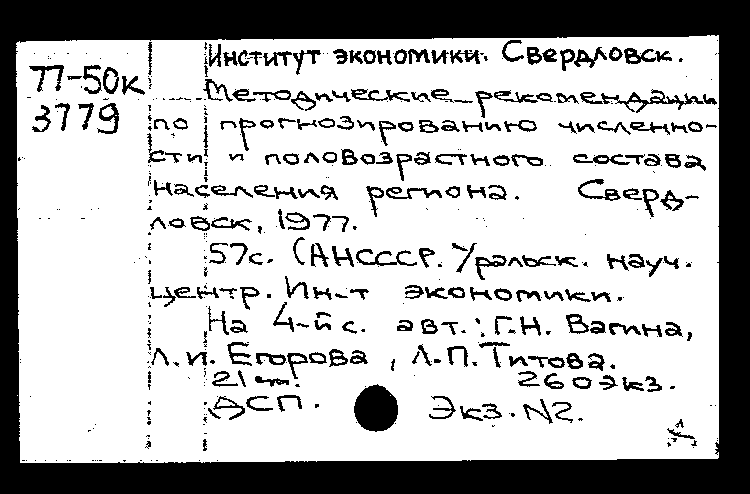 77-50к
3779
Институт экономики. Свердловск.
Методические рекомендации
по прогнозированию численно-
сти и половозрастного состава
населения региона. Сверд-
ловск, 1977.
57с. (АНСССР. Уральск. науч.
центр. Ин-т экономики.
На 4-й с. авт.: Г.Н. Вагина,
Л.И. Егорова, Л.П. Титова.
21 см. 260экз.
ДСП. Экз. N2.